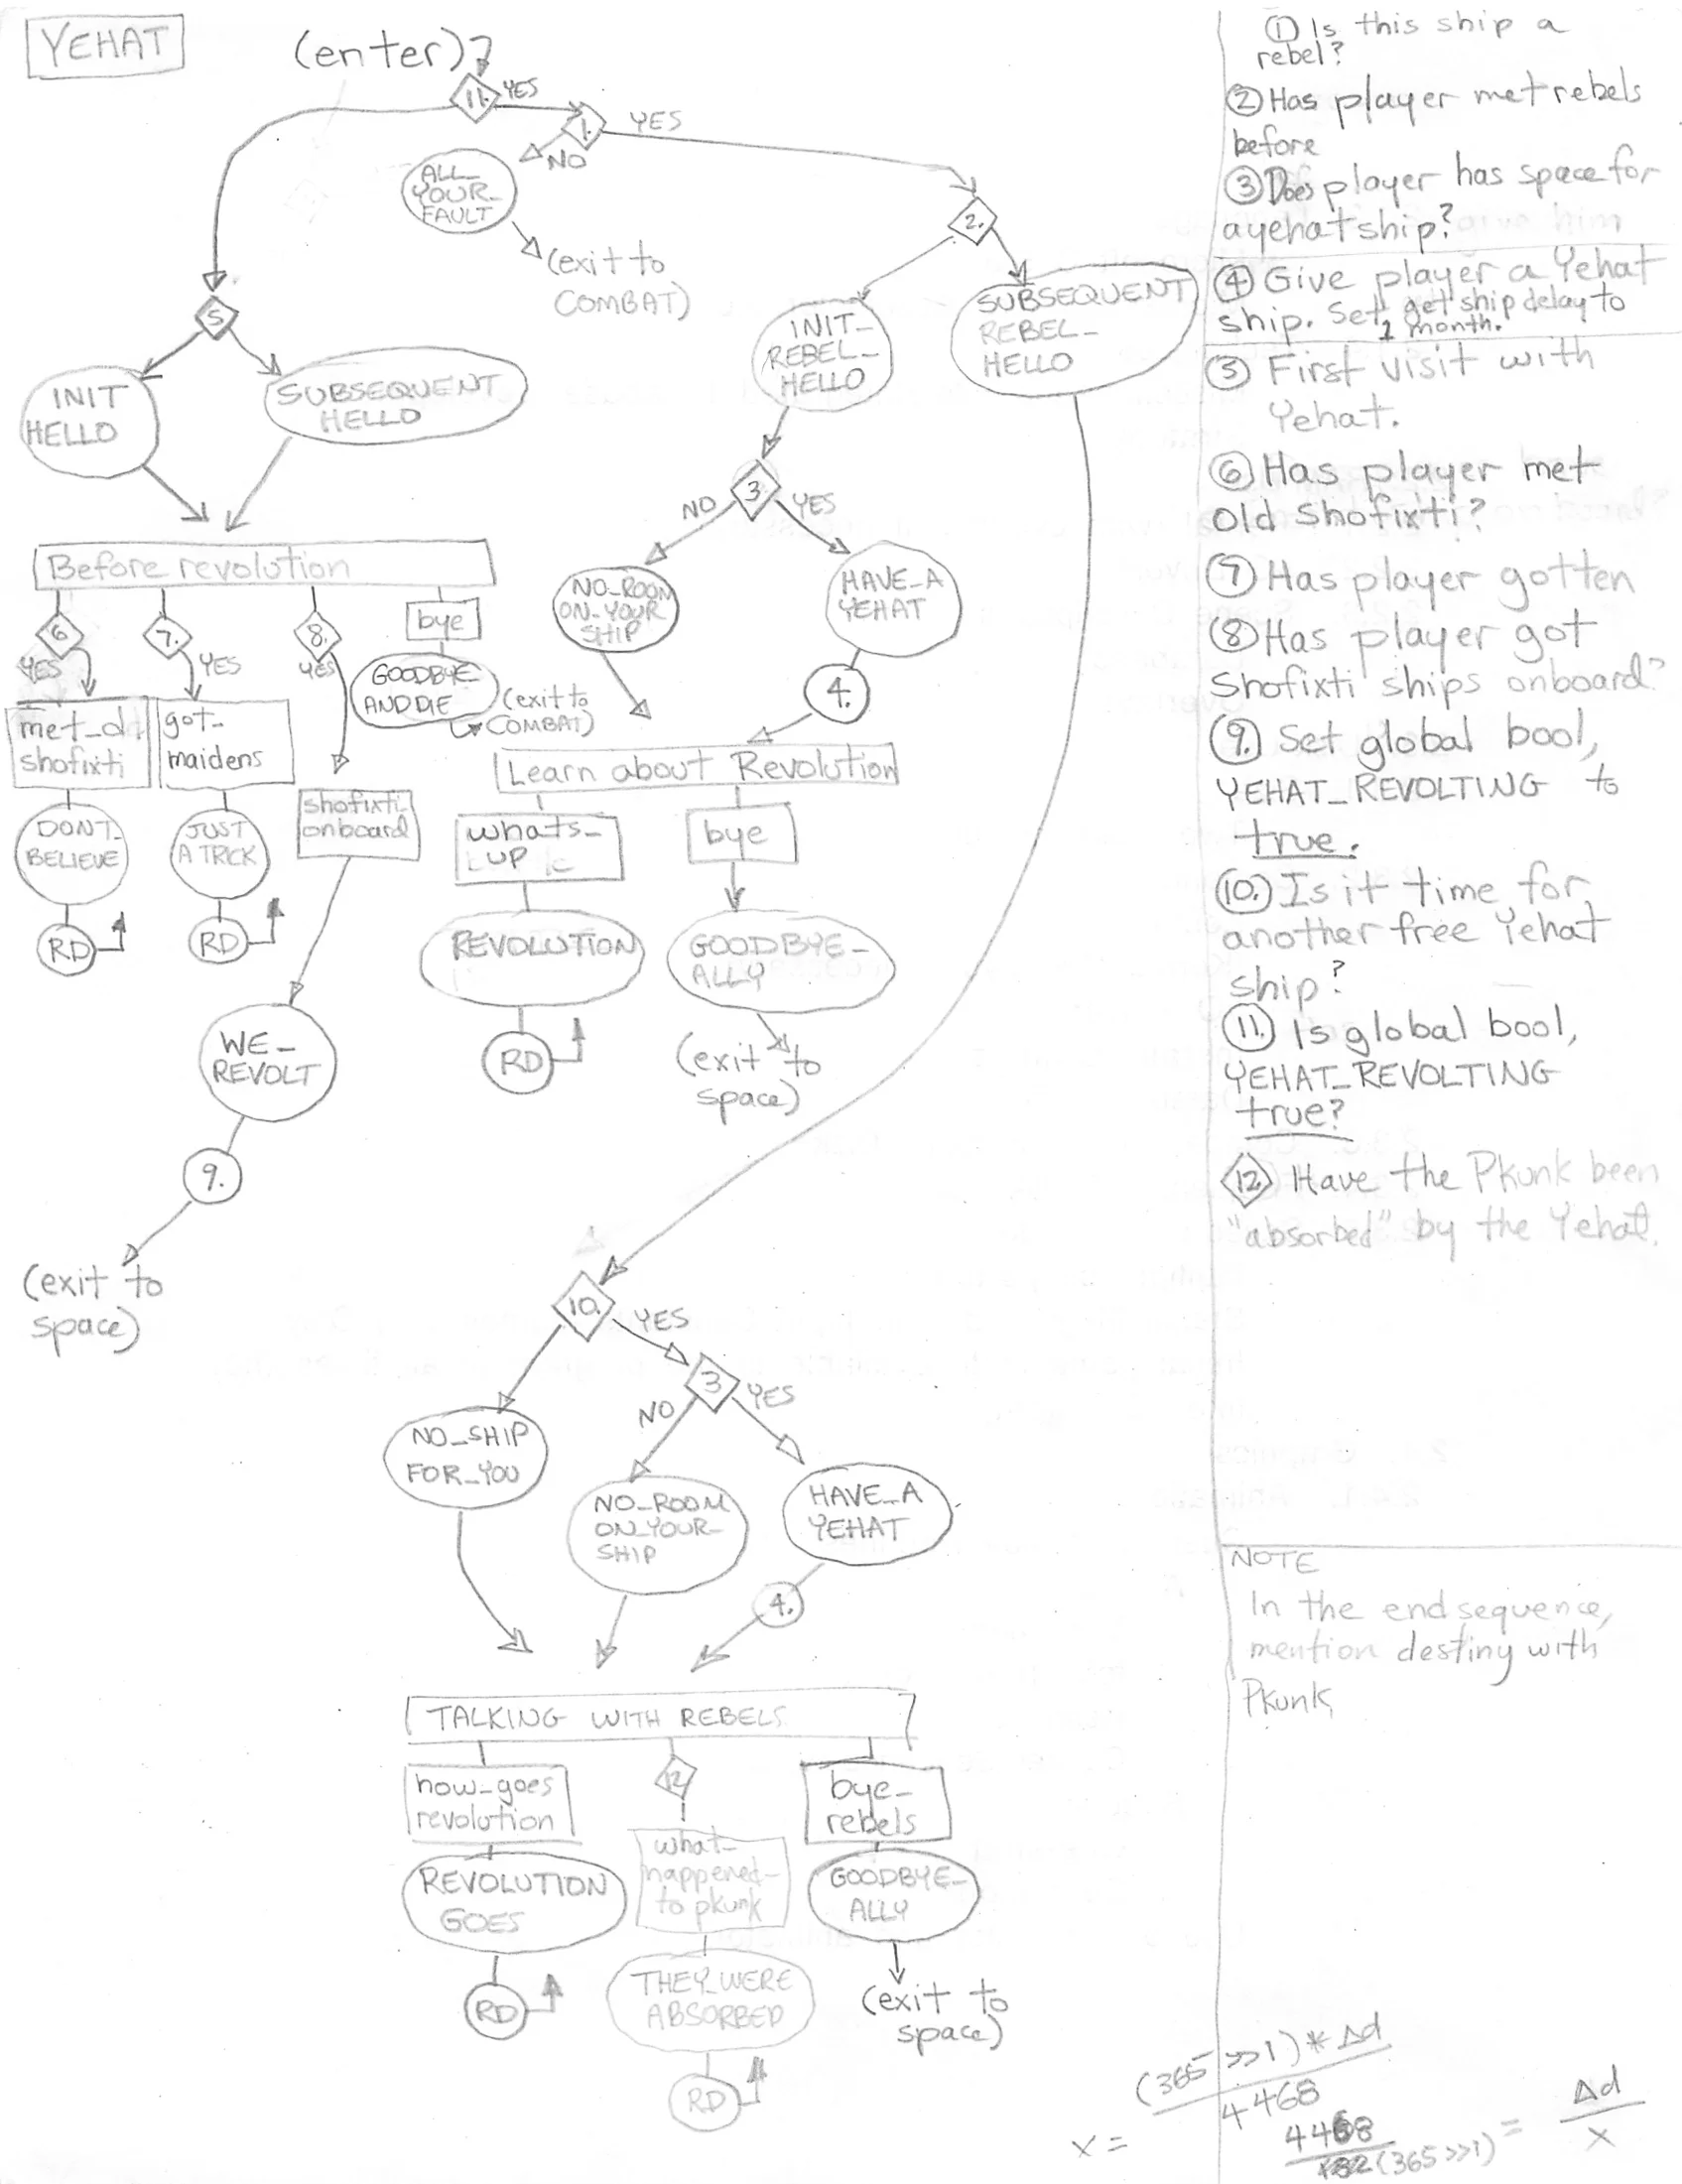 YEHAT
(enter)
11.
YES
1.
YES
NO
ALL_
YOUR_
FAULT
(exit to
COMBAT)
2.
5
INIT
HELLO
SUBSEQUENT
HELLO
INIT_
REBEL_
HELLO
SUBSEQUENT
REBEL_
HELLO
3.
NO
YES
NO_ROOM
ON_YOUR
SHIP
HAVE_A
YEHAT
4.
Before revolution
6
YES
7.
YES
8.
YES
bye
GOODBYE
AND DIE
(exit to
COMBAT)
met_old
shofixti
got_
maidens
shofixti
onboard
DONT_
BELIEVE
JUST
A TRICK
RD
RD
WE_
REVOLT
9.
(exit to
space)
Learn about Revolution
whats_
UP
bye
REVOLUTION
GOODBYE_
ALLY
RD
(exit to
space)
10.
YES
3
NO
YES
NO_SHIP
FOR_YOU
NO_ROOM
ON_YOUR_
SHIP
HAVE_A
YEHAT
4.
TALKING WITH REBELS
how_goes
revolution
12
what_
happened_
to pkunk
bye_
rebels
REVOLUTION
GOES
THEY_WERE
ABSORBED
GOODBYE_
ALLY
RD
RD
(exit to
space)
① Is this ship a
rebel?
② Has player met rebels
before
③ Does player has space for
a yehat ship?
④ Give player a Yehat
ship. Set get ship delay to
1 month.
⑤ First visit with
Yehat.
⑥ Has player met
old Shofixti?
⑦ Has player gotten
⑧ Has player got
Shofixti ships onboard?
⑨. Set global bool,
YEHAT_REVOLTING to
true.
⑩. Is it time for
another free Yehat
ship?
⑪. Is global bool,
YEHAT_REVOLTING
true?
12. Have the Pkunk been
"absorbed" by the Yehat.
NOTE
In the end sequence,
mention destiny with
Pkunk
(365 >>1) * Δd
4468
x =
4468
(365>>1)
= Δd
x